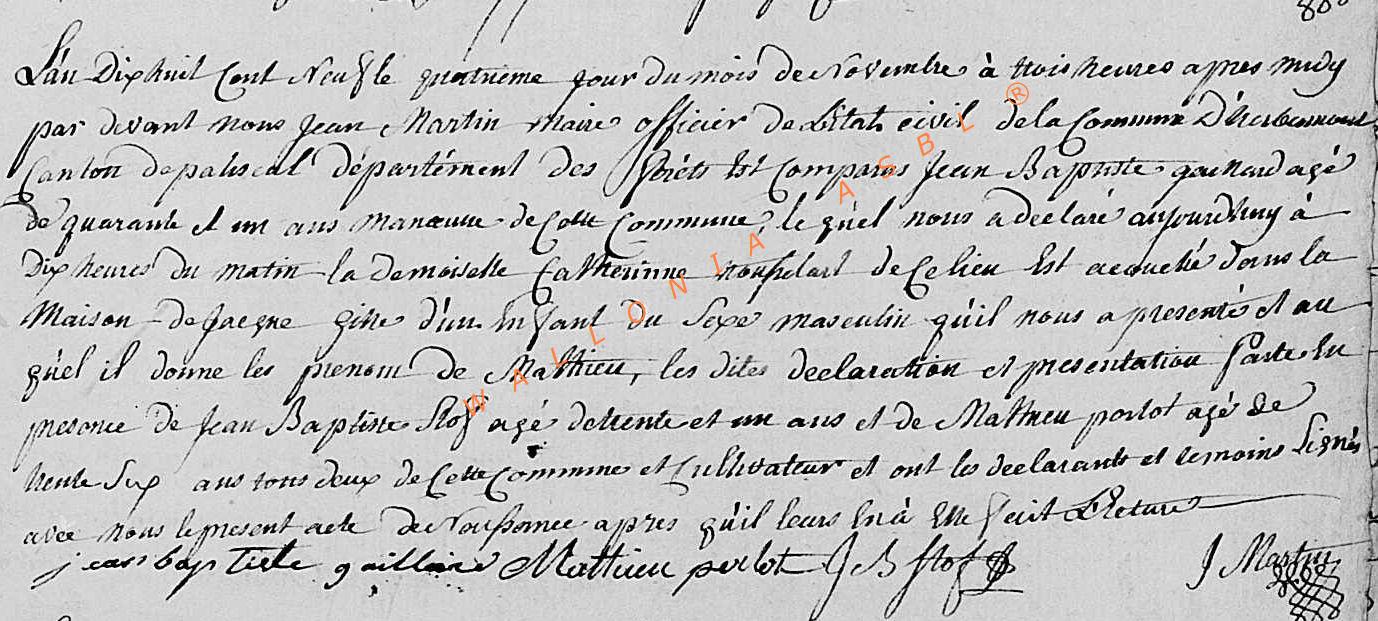 L'an Dix huit Cent Neuf le quatrieme jour du mois de Novembre à trois heures apres midy
par devant nous Jean Martin maire officier de L'Etat civil de la Commune D'herbeumont
Canton de paliseul département des Foréts Est Comparus Jean Baptiste gaillard agé
de quarante et un ans manœuvre de Cette Commune, le quel nous a declaré aujourdhuy à
Dix heures du matin la demoiselle Catherinne de Ce lieu Est acouché dans la
Maison de Jacque d'un Enfant du Sexe masculin qu'il nous a presenté et au
quel il donne les prenom de Mathieu, les dites declaration et presentation faite En
presence de Jean Baptiste Stof agé de trente et un ans et de Mathieu porlot agé de
trente Six ans tous deux de Cette Commune et Cultivateur et ont les declarants et temoins Signés
avec nous le present acte de Naissance apres qu'il leurs En à Etté fait Lecture
jean baptiste gaillard Mathieu perlot J B Stof J Martin
WALLONIA ASBL ®